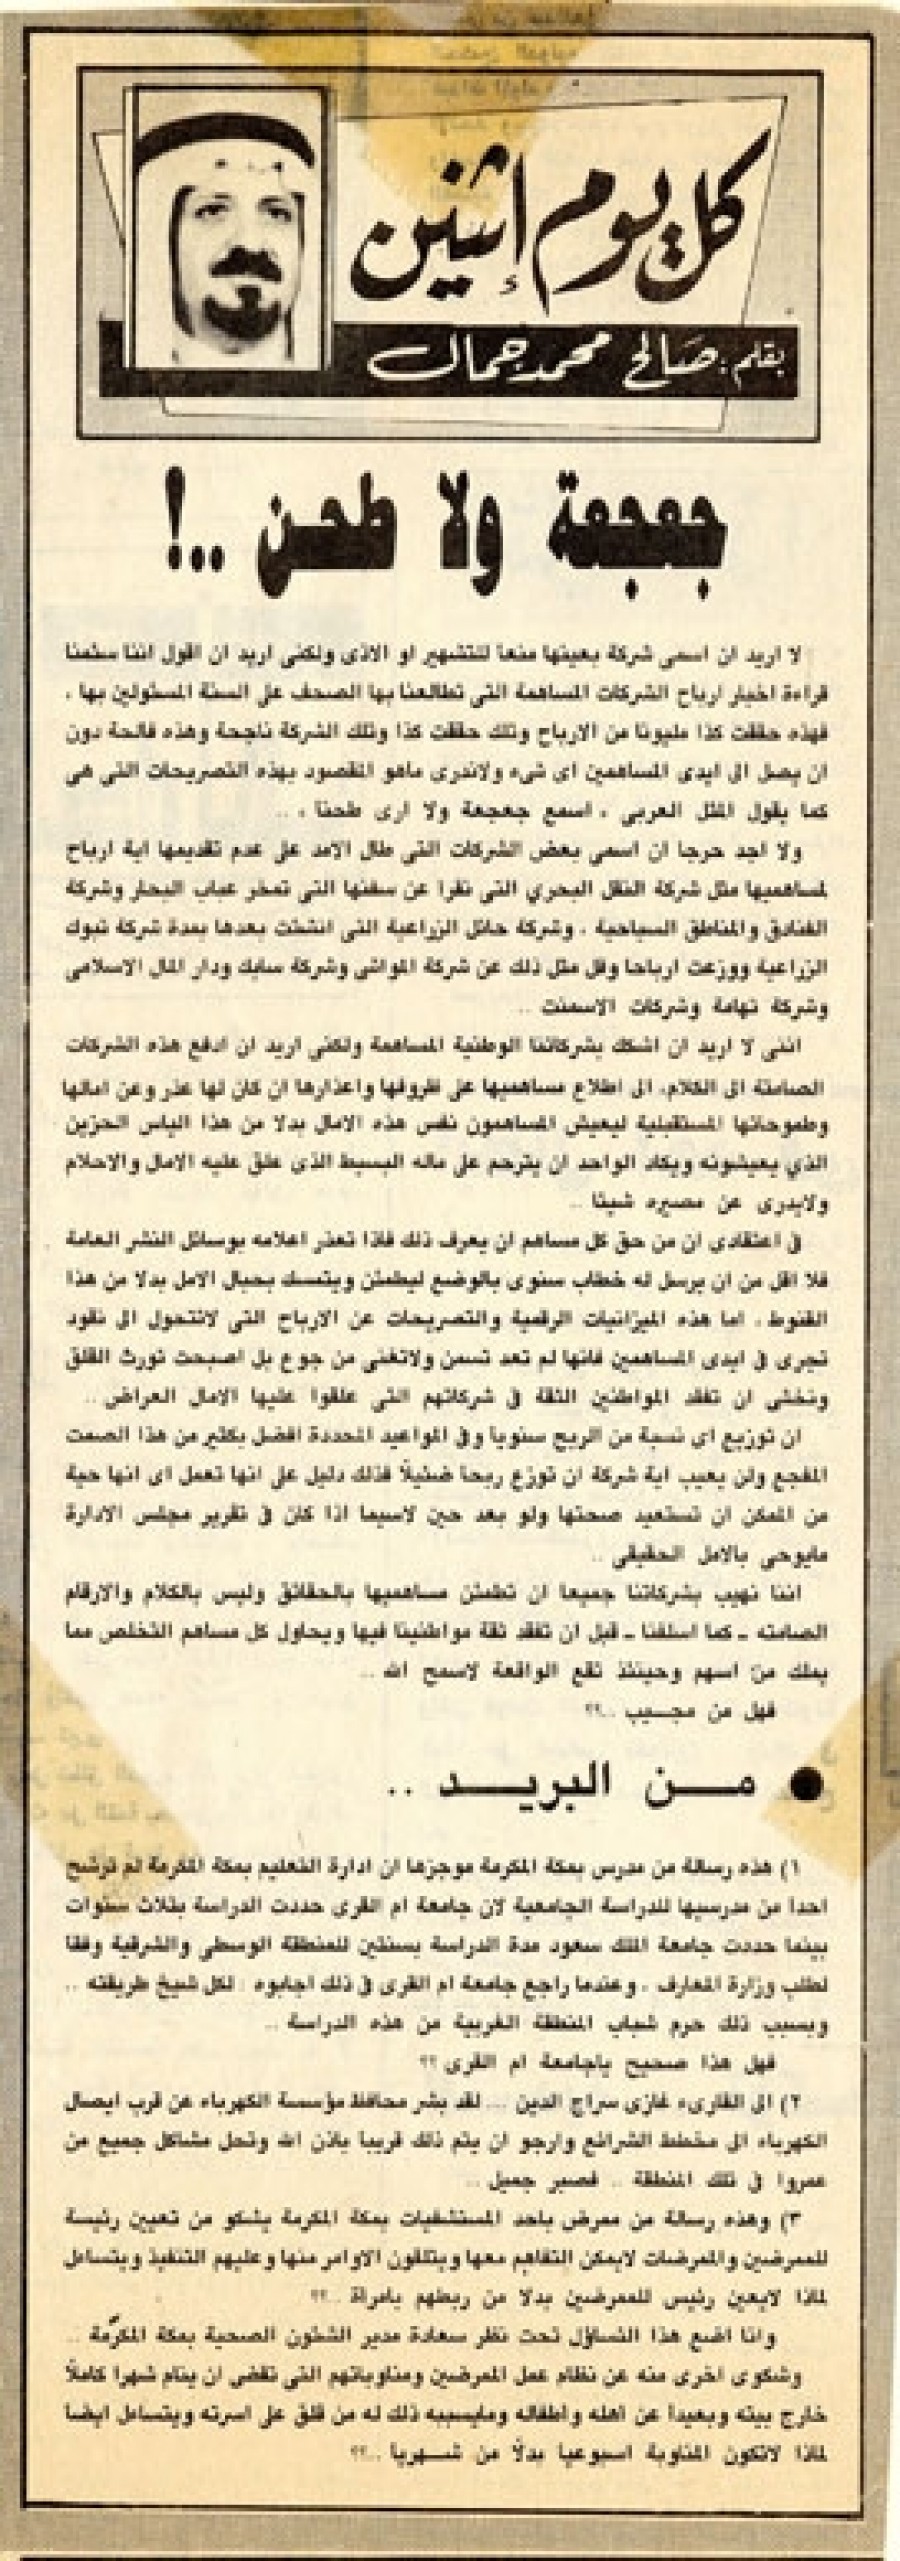 كل يوم إثنين
بقلم : صالح محمد جمال
جعجعة ولا طحن ..!
لا اريد ان اسمى شركة بعينها منعا للتشهير او الاذى ولكنى اريد ان اقول اننا سئمنا
قراءة اخبار ارباح الشركات المساهمة التى تطالعنا بها الصحف على السنة المسئولين بها ،
فهذه حققت كذا مليونا من الارباح وتلك حققت كذا وتلك الشركة ناجحة وهذه فالحة دون
ان يصل الى ايدى المساهمين اى شىء ولاندرى ماهو المقصود بهذه التصريحات التى هى
كما يقول المثل العربى ، اسمع جعجعة ولا ارى طحنا ، ..
ولا اجد حرجا ان اسمى بعض الشركات التى طال الامد على عدم تقديمها اية ارباح
لمساهميها مثل شركة النقل البحري التى نقرا عن سفنها التى تمخر عباب البحار وشركة
الفنادق والمناطق السياحية ، وشركة حائل الزراعية التى انشئت بعدها بمدة شركة تبوك
الزراعية ووزعت ارباحا وقل مثل ذلك عن شركة المواشى وشركة سابك ودار المال الاسلامى
وشركة تهامة وشركات الاسمنت ..
اننى لا اريد ان اشكك بشركاتنا الوطنية المساهمة ولكنى اريد ان ادفع هذه الشركات
الصامتة الى الكلام، الى اطلاع مساهميها على ظروفها واعذارها ان كان لها عذر وعن امالها
وطموحاتها المستقبلية ليعيش المساهمون نفس هذه الامال بدلا من هذا الياس الحزين
الذي يعيشونه ويكاد الواحد ان يترحم على ماله البسيط الذى علق عليه الامال والاحلام
ولايدرى عن مصيره شيئا ..
فى اعتقادى ان من حق كل مساهم ان يعرف ذلك فاذا تعذر اعلامه بوسائل النشر العامة
فلا اقل من ان يرسل له خطاب سنوى بالوضع ليطمئن ويتمسك بحبال الامل بدلا من هذا
القنوط ، اما هذه الميزانيات الرقمية والتصريحات عن الارباح التى لاتتحول الى نقود
تجرى فى ايدى المساهمين فانها لم تعد تسمن ولاتغنى من جوع بل اصبحت تورث القلق
ونخشى ان تفقد المواطنين الثقة فى شركاتهم التى علقوا عليها الامال العراض ..
ان توزيع اى نسبة من الربح سنويا وفى المواعيد المحددة افضل بكثير من هذا الصمت
المفجع ولن يعيب اية شركة ان توزع ربحا ضئيلا فذلك دليل على انها تعمل اى انها حية
من الممكن ان تستعيد صحتها ولو بعد حين لاسيما اذا كان فى تقرير مجلس الادارة
مايوحى بالامل الحقيقى ..
اننا نهيب بشركاتنا جميعا ان تطمئن مساهميها بالحقائق وليس بالكلام والارقام
الصامته ـ كما اسلفنا ـ قبل ان تفقد ثقة مواطنينا فيها ويحاول كل مساهم التخلص مما
يملك من اسهم وحينئذ تقع الواقعة لاسمح الله ..
فهل من مجــيب ..؟؟
● مــن البريــد ..
١) هذه رسالة من مدرس بمكة المكرمة موجزها ان ادارة التعليم بمكة المكرمة لم ترشح
احدا من مدرسيها للدراسة الجامعية لان جامعة ام القرى حددت الدراسة بثلاث سنوات
بينما حددت جامعة الملك سعود مدة الدراسة بسنتين للمنطقة الوسطى والشرقية وفقا
لطلب وزارة المعارف ، وعندما راجع جامعة ام القرى فى ذلك اجابوه : لكل شيخ طريقته ..
وبسبب ذلك حرم شباب المنطقة الغربية من هذه الدراسة ..
فهل هذا صحيح ياجامعة ام القرى ؟؟
٢) الى القارىء غازى سراج الدين ... لقد بشر محافظ مؤسسة الكهرباء عن قرب ايصال
الكهرباء الى مخطط الشرائع وارجو ان يتم ذلك قريبا باذن الله وتحل مشاكل جميع من
عمروا فى تلك المنطقة .. فصبر جميل ..
٣) وهذه رسالة من ممرض باحد المستشفيات بمكة المكرمة يشكو من تعيين رئيسة
للممرضين والممرضات لايمكن التفاهم معها ويتلقون الاوامر منها وعليهم التنفيذ ويتساءل
لماذا لايعين رئيس للممرضين بدلا من ربطهم بامراة ..؟؟
وانا اضع هذا التساؤل تحت نظر سعادة مدير الشئون الصحية بمكة المكرّمة ..
وشكوى اخرى منه عن نظام عمل الممرضين ومناوباتهم التى تقضى ان ينام شهرا كاملاً
خارج بيته وبعيداً عن اهله وأطفاله ومايسببه ذلك له من قلق على اسرته ويتساءل ايضاً
لماذا لاتكون المناوبة اسبوعيا بدلاً من شــهريا ..؟؟